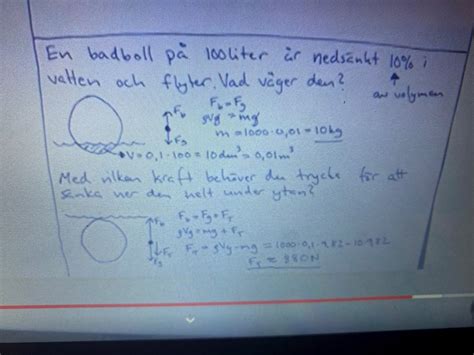 En badboll på 100liter är nedsänkt 10% i
vatten och flyter. Vad väger den?
av volymen
Fb = Fg
ρVg = mg
m = 1000·0,01 = 10kg
Fb
Fg
V = 0,1·100 = 10dm³ = 0,01m³
Med vilken kraft behöver du trycka för att
sänka ner den helt under ytan?
Fb
Fb = Fg + FT
ρVg = mg + FT
FT = ρVg - mg = 1000·0,1·9,82 - 10·9,82
FT ≈ 880N
FT
Fg